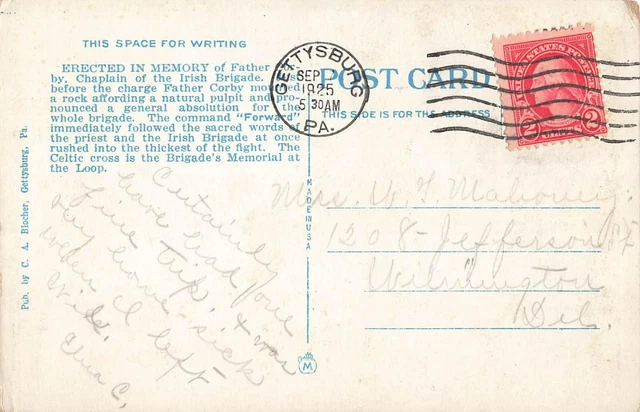 THIS SPACE FOR WRITING
ERECTED IN MEMORY of Father
by, Chaplain of the Irish Brigade.
before the charge Father Corby
a rock affording a natural pulpit and pro-
nounced a general absolution for the
whole brigade. The command "Forward"
immediately followed the sacred words of
the priest and the Irish Brigade at once
rushed into the thickest of the fight. The
Celtic cross is the Brigade's Memorial at
the Loop.
Pub. by C. A. Blocher, Gettysburg, Pa.
Certainly
have had fine
trip, & was
home-sick
when I left
Wild.
C.
MADE IN USA
M
GETTYSBURG
SEP
1925
5 30AM
PA.
POST CARD
THIS SIDE IS FOR THE ADDRESS
UNITED STATES POSTAGE
2 CENTS 2
Mrs. W T Mahoney
1208-Jefferson St
Wilmington
Del.